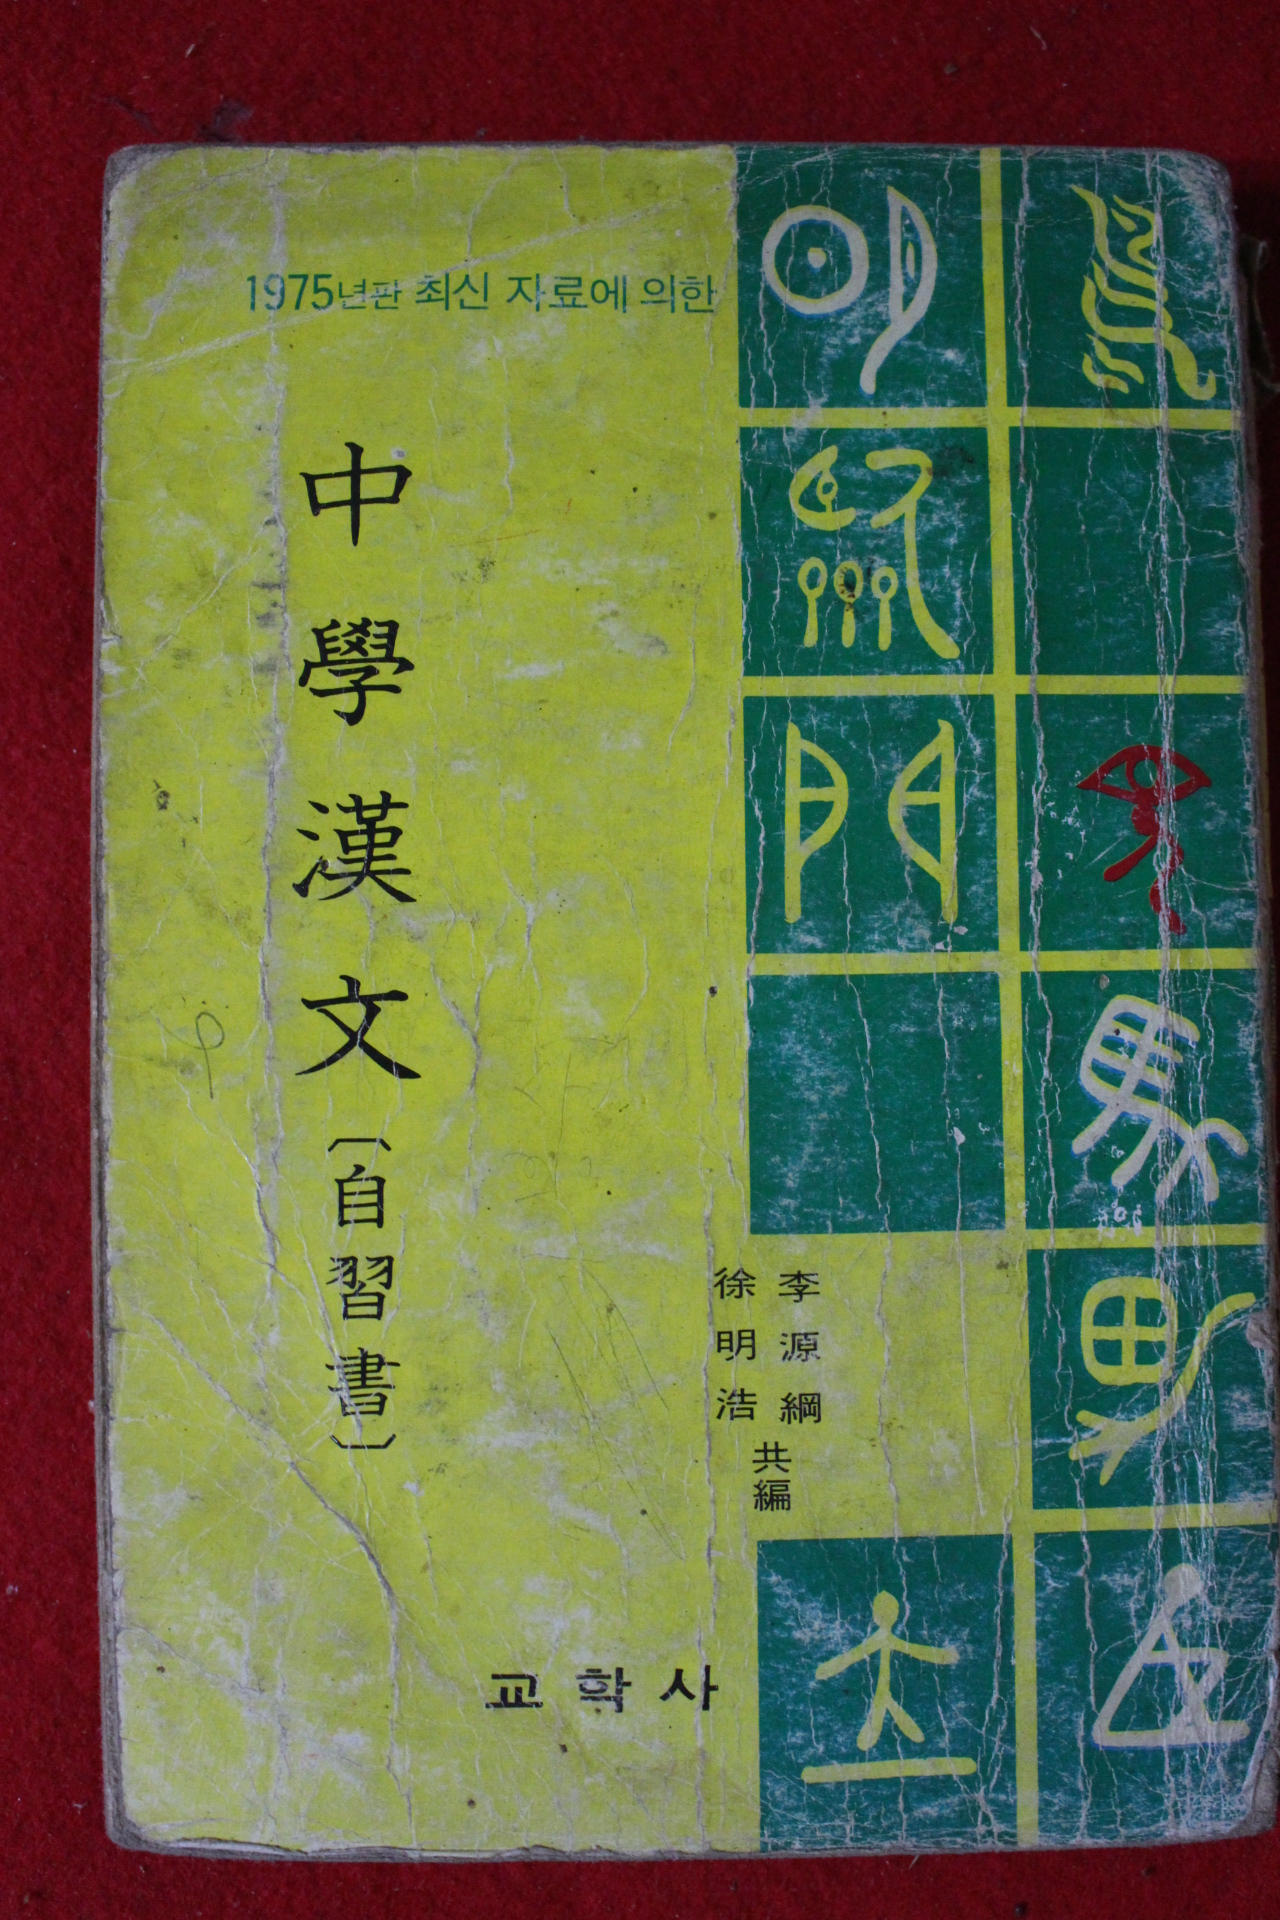 1975년판 최신 자료에 의한
中學漢文〔自習書〕
李源綱
徐明浩
共編
교학사